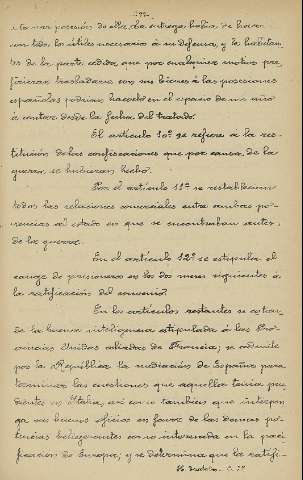 -177-
se tomar posesión de ella. La entrega había de hacerse
con todos los útiles necesarios á su defensa, y los habitan-
tes de la parte cedida, que por cualquier motivo pre-
firieran trasladarse con sus bienes á las posesiones
españolas podrían hacerlo en el espacio de un año
á contar desde la fecha del tratado.
El artículo 10º se refiere á la res-
titución de las confiscaciones que por causa de la
guerra, se hubieran hecho.
Por el artículo 11º se restablecen
todas las relaciones comerciales entre ambas po-
tencias al estado en que se encontraban antes
de la guerra.
En el artículo 12º se estipula el
cange de prisioneros en los dos meses siguientes á
la ratificación del convenio.
En los artículos restantes se extien-
de la buena inteligencia estipulada á las Pro-
vincias Unidas aliadas de Francia; se admite
por la República la mediación de España para
terminar las cuestiones que aquella tenía pen-
dientes en Italia, así como tambien que interpon-
ga sus buenos oficios en favor de las demas po-
tencias beligerantes con su intervención en la paci-
ficación de Europa; y se determina que la ratifi-